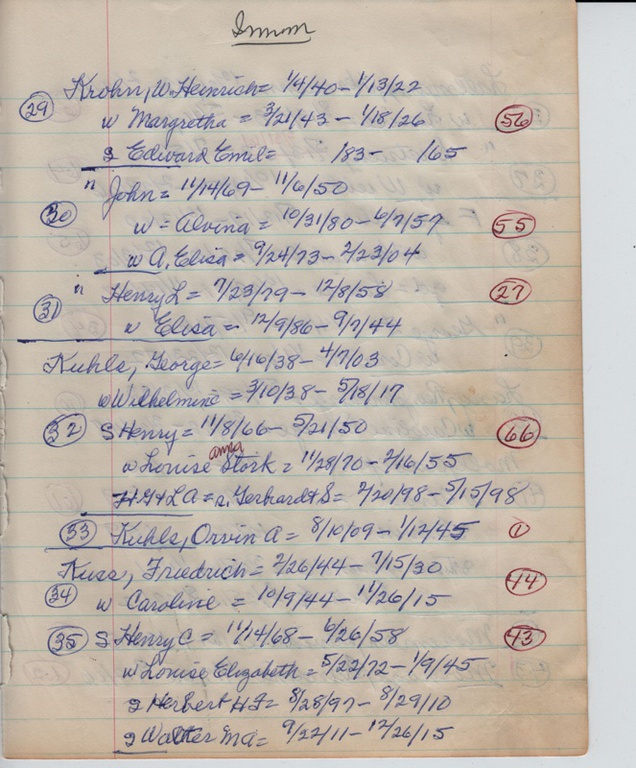 Krohn, W. Heinrich = 1/4/40 - 1/13/22
29 w Margretha = 3/21/43 - 1/18/26 56
g Edward Emil = /83 - /65
" John = 11/14/69 - 11/6/50
30 w = Alvina = 10/31/80 - 6/7/57 55
w A. Elisa = 9/24/73 - 2/23/04
" Henry L = 7/23/79 - 12/8/58 27
31 w Elisa = 12/9/86 - 9/7/44
Kuhls, George = 6/16/38 - 4/7/03
w Wilhelmine = 3/10/38 - 5/18/17
32 S Henry = 11/8/66 - 5/21/50 66
anna
w Louise Stork = 11/28/70 - 2/16/55
H.G & L A = s. Gerhardt S = 2/20/98 - 5/15/98
33 Kuhls, Orvin A = 8/10/09 - 1/12/45 1
Kuss, Friedrich = 2/26/44 - 7/15/30
34 w Caroline = 10/9/44 - 11/26/15 44
35 S Henry C = 11/14/68 - 6/26/58 43
w Louise Elizabeth = 5/22/72 - 1/9/45
g Herbert H F = 8/28/97 - 8/29/10
g Walter = 9/22/11 - 12/26/15